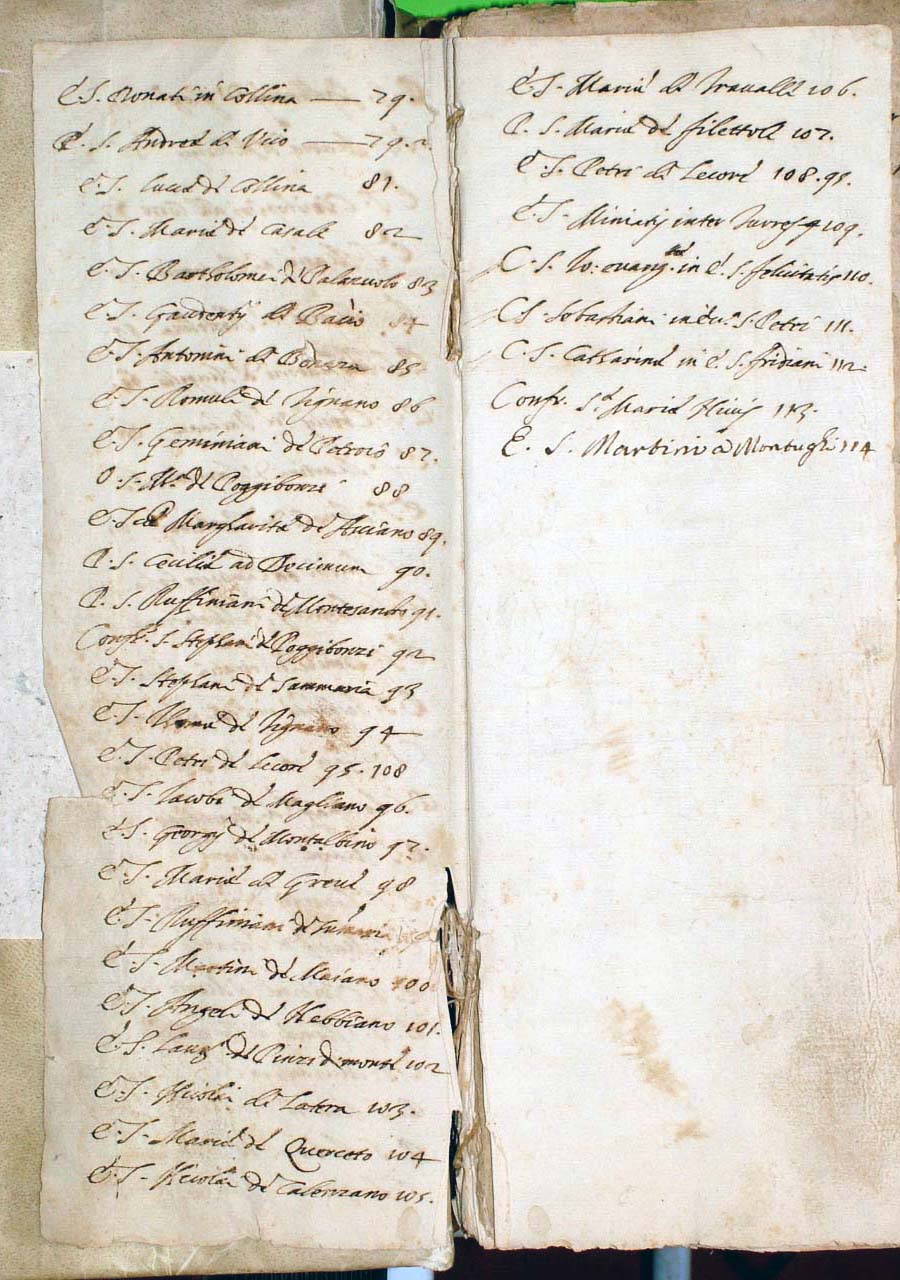 E. S. Donati in Collina — 79.
P. S. Andreæ de Vico — 79.2.
E. S. Luciæ de Collina 81.
E. S. Mariæ de Casale 82
E. S. Bartholomei de Palazuolo 83
E. S. Gaudentij de 84
E. S. Antonini de 85
E. S. Romuli de Signano 86
E. S. Geminiani de Petroio 87.
O. S. M.ª de Poggibonzi 88
E. S. Margharitæ de Asciano 89.
P. S. Ceciliæ ad Decimum 90.
P. S. Ruffiniani de 91.
Confr. S. Stephani de Poggibonzi 92
E. S. Stephani de Sammaria 93
E. S. de Signano 94
E. S. Petri de Lecore 95. 108
E. S. Iacobi de Magliano 96.
E. S. Georgij de Montalbino 97.
E. S. Mariæ de Greve 98
E. S. Ruffiniani de
E. S. Martini de Maiano 100
E. S. Angeli de Nebbiano 101.
E. S. Laur.ij de Pinzi di monte 102
E. S. Nicolai de Latera 103.
E. S. Mariæ de Querceto 104
E. S. Nicolai de Calenzano 105.
E. S. Mariæ de Travalle 106.
P. S. Mariæ de filettole 107.
E. S. Petri de Lecore 108. 95.
E. S. Miniatis inter Turres 109.
C. S. Io: evang. in E. S. felicitatis 110.
C. S. Sebastiani in S. Petri 111.
C. S. Catharinæ in E. S. fridiani 112.
Confr. S. Mariæ Nivis 113.
E. S. Martino a Montughi 114